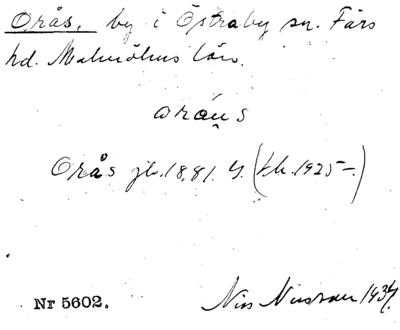 Orås, by i Östraby sn. Färs
hd. Malmöhus län.
oråus
Orås jb. 1881 4. (fk. 1925–)
Nr 5602.
Nils 1934.